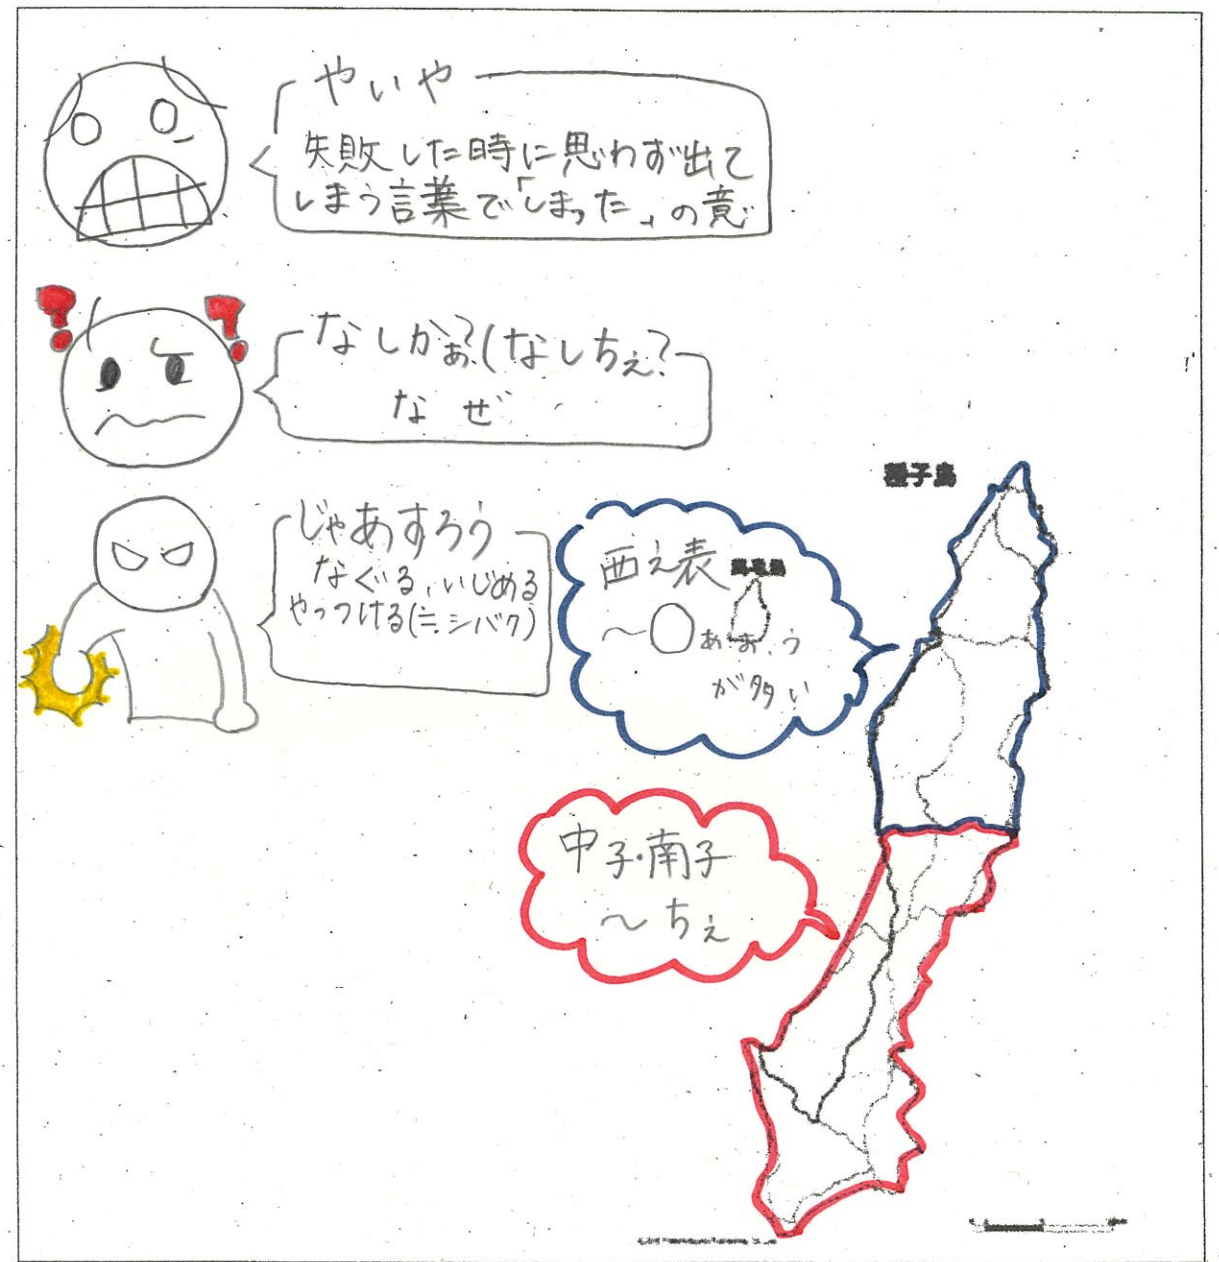 やいや
失敗した時に思わず出て
しまう言葉で「しまった」の意
なしかぁ?(なしちぇ?
なぜ
じゃあすろう
なぐる、いじめる
やっつける(≒シバク)
種子島
西之表
〜○ぁ
う
が多い
中子・南子
〜ちぇ